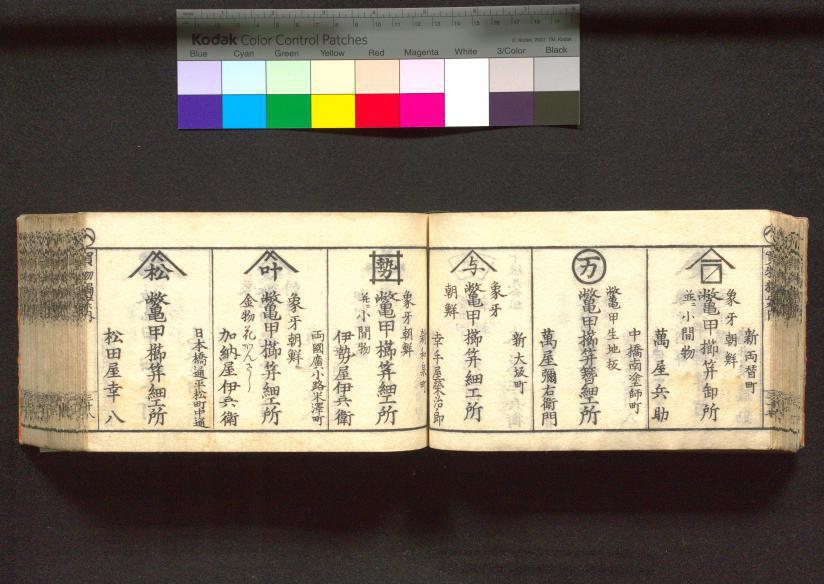 Kodak Color Control Patches
© Kodak, 2007 TM: Kodak
Blue Cyan Green Yellow Red Magenta White 3/Color Black
新両替町
象牙朝鮮
鼈亀甲櫛笄卸所
並ニ小間物
萬屋兵助
中橋南塗師町
鼈亀甲生地板
万
鼈亀甲櫛笄簪細工所
新大坂町
萬屋彌右衛門
象牙
与
鼈亀甲櫛笄細工所
朝鮮
幸手屋栄治郎
象牙朝鮮
勢
鼈亀甲櫛笄細工所
並ニ小間物
伊勢屋伊兵衛
両國廣小路米澤町
象牙朝鮮
叶
鼈亀甲櫛笄細工所
金物花かんざし
加納屋伊兵衛
日本橋通平松町中通
松
鼈亀甲櫛笄細工所
松田屋幸八